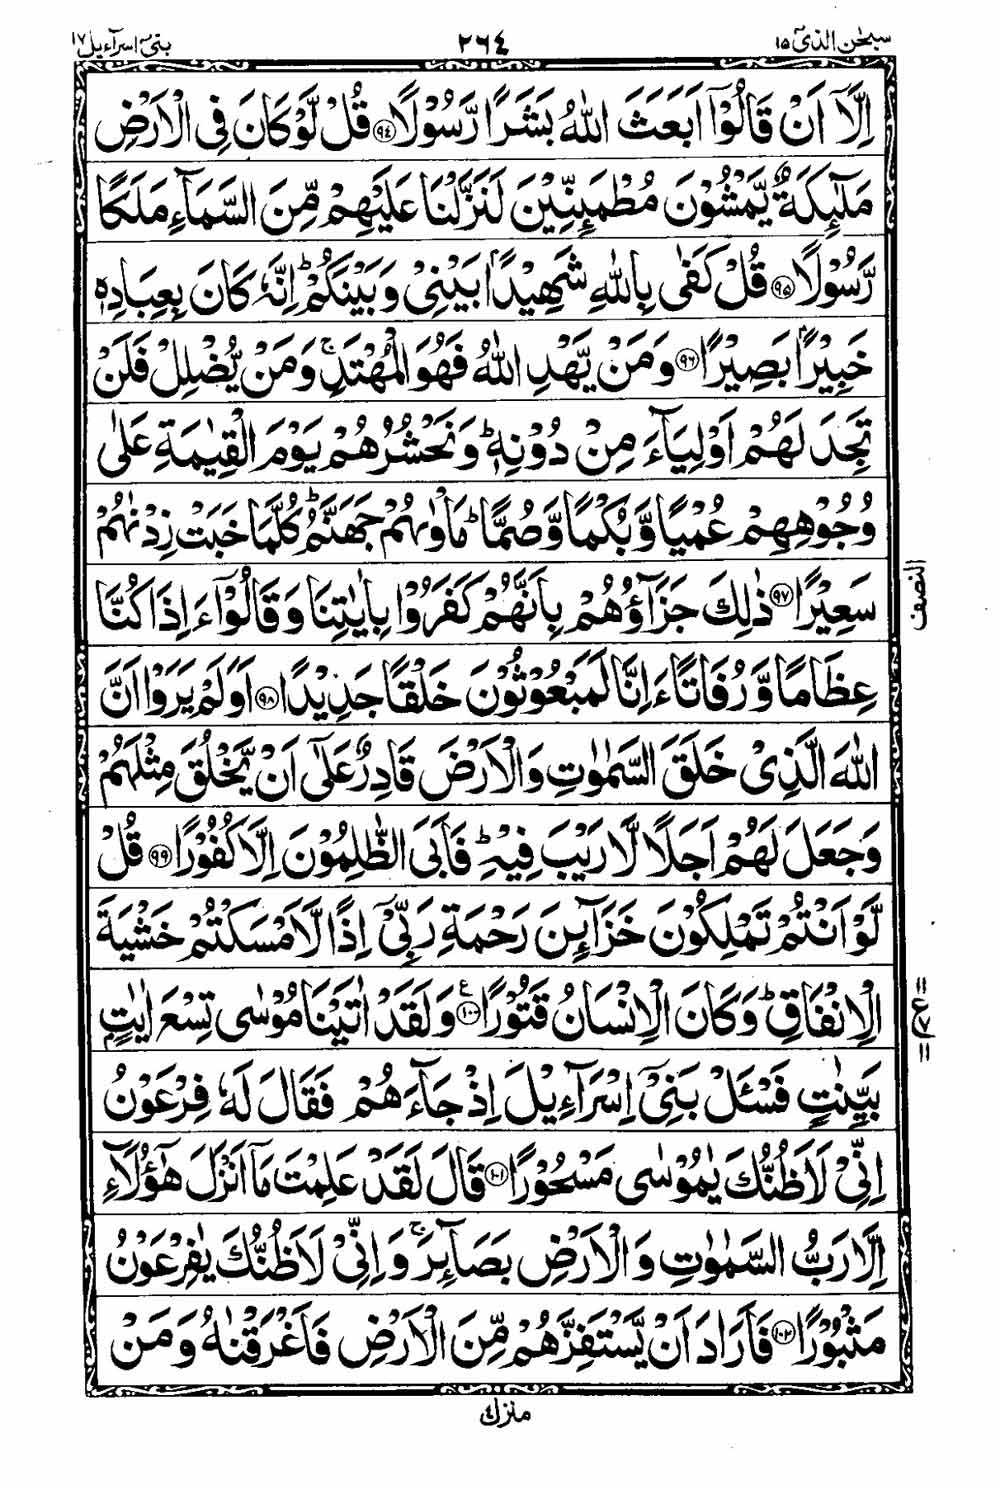 سبحٰن الذیۤ ١٥ ٢٦٤ بنیۤ اسرآءیل ١٧
اِلَّاۤ اَنْ قَالُوْۤا اَبَعَثَ اللّٰهُ بَشَرًا رَّسُوْلًا ﴿٩٤﴾ قُلْ لَّوْ كَانَ فِی الْاَرْضِ
مَلٰٓىِٕكَةٌ یَّمْشُوْنَ مُطْمَىِٕنِّیْنَ لَنَزَّلْنَا عَلَیْهِمْ مِّنَ السَّمَآءِ مَلَكًا
رَّسُوْلًا ﴿٩٥﴾ قُلْ كَفٰی بِاللّٰهِ شَهِیْدًۢا بَیْنِیْ وَبَیْنَكُمْ ؕ اِنَّهٗ كَانَ بِعِبَادِهٖ
خَبِیْرًۢا بَصِیْرًا ﴿٩٦﴾ وَمَنْ یَّهْدِ اللّٰهُ فَهُوَ الْمُهْتَدِ ۚ وَمَنْ یُّضْلِلْ فَلَنْ
تَجِدَ لَهُمْ اَوْلِیَآءَ مِنْ دُوْنِهٖ ؕ وَنَحْشُرُهُمْ یَوْمَ الْقِیٰمَةِ عَلٰی
وُجُوْهِهِمْ عُمْیًا وَّبُكْمًا وَّصُمًّا ؕ مَاْوٰىهُمْ جَهَنَّمُ ؕ كُلَّمَا خَبَتْ زِدْنٰهُمْ
سَعِیْرًا ﴿٩٧﴾ ذٰلِكَ جَزَآؤُهُمْ بِاَنَّهُمْ كَفَرُوْا بِاٰیٰتِنَا وَقَالُوْۤا ءَاِذَا كُنَّا
عِظَامًا وَّرُفَاتًا ءَاِنَّا لَمَبْعُوْثُوْنَ خَلْقًا جَدِیْدًا ﴿٩٨﴾ اَوَلَمْ یَرَوْا اَنَّ
اللّٰهَ الَّذِیْ خَلَقَ السَّمٰوٰتِ وَالْاَرْضَ قَادِرٌ عَلٰۤی اَنْ یَّخْلُقَ مِثْلَهُمْ
وَجَعَلَ لَهُمْ اَجَلًا لَّا رَیْبَ فِیْهِ ؕ فَاَبَی الظّٰلِمُوْنَ اِلَّا كُفُوْرًا ﴿٩٩﴾ قُلْ
لَّوْ اَنْتُمْ تَمْلِكُوْنَ خَزَآىِٕنَ رَحْمَةِ رَبِّیْۤ اِذًا لَّاَمْسَكْتُمْ خَشْیَةَ
الْاِنْفَاقِ ؕ وَكَانَ الْاِنْسَانُ قَتُوْرًا ﴿١٠٠﴾ ع وَلَقَدْ اٰتَیْنَا مُوْسٰی تِسْعَ اٰیٰتٍۭ
بَیِّنٰتٍ فَسْـَٔلْ بَنِیْۤ اِسْرَآءِیْلَ اِذْ جَآءَهُمْ فَقَالَ لَهٗ فِرْعَوْنُ
اِنِّیْ لَاَظُنُّكَ یٰمُوْسٰی مَسْحُوْرًا ﴿١٠١﴾ قَالَ لَقَدْ عَلِمْتَ مَاۤ اَنْزَلَ هٰۤؤُلَآءِ
اِلَّا رَبُّ السَّمٰوٰتِ وَالْاَرْضِ بَصَآىِٕرَ ۚ وَاِنِّیْ لَاَظُنُّكَ یٰفِرْعَوْنُ
مَثْبُوْرًا ﴿١٠٢﴾ فَاَرَادَ اَنْ یَّسْتَفِزَّهُمْ مِّنَ الْاَرْضِ فَاَغْرَقْنٰهُ وَمَنْ
النصف
منزل ٤